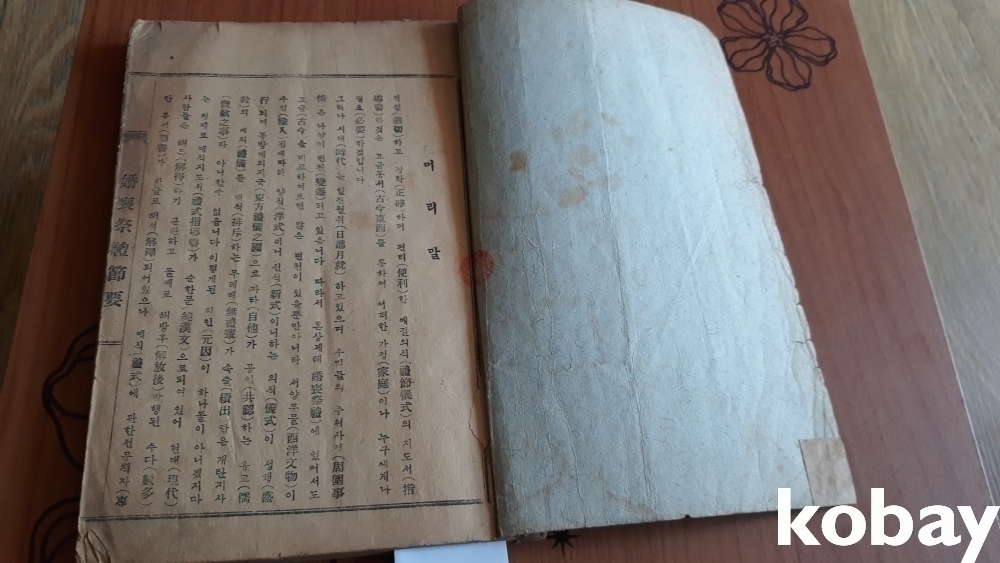 머리말
하고 정확(正確)하며 편리(便利)한 예절의식(禮節儀式)의 지도서(指
導書)라것은 고금동서(古今東西)를 통하여 어떠한 가정(家庭)이나 누구에게나
필요(必要)한것입니다
그러나 시대(時代)는 하고있으며 우리들의 주위사정(周圍事
情)은 나날이 변천(變遷)되고 있읍니다 따라서 혼상제례(婚喪祭禮)에 있어서도
고금(古今)을 많은 변천이 있을뿐만아니라 서양문물(西洋文物)이
수입(輸入)됨에따라 양식(洋式)이니 신식(新式)이니하는 의식(儀式)이 성행(盛
行)되며 동방예의지국(東方禮儀之國)으로 자타(自他)가 공인(共認)하는 유교(儒
敎)의 예의(禮儀)를 배척(排斥)하는 무례배(無禮輩)가 속출(續出)함은 개탄지사
(慨歎之事)라 아니할수 없읍니다 이렇게된 원인(元因)이 하나둘이 아니겠지다
는 첫재로 예식지도서(禮式指導書)가 순한문(純漢文)으로되여 있어 현대(現代)
사람들은 해득(解得)하기 곤란하고 둘재로 해방후(解放後)발행된 수다(數多)
한 한글로 해석(解釋)되어있으나 예식(禮式)에 관한전문학자(專
婚喪祭禮節要
kobay